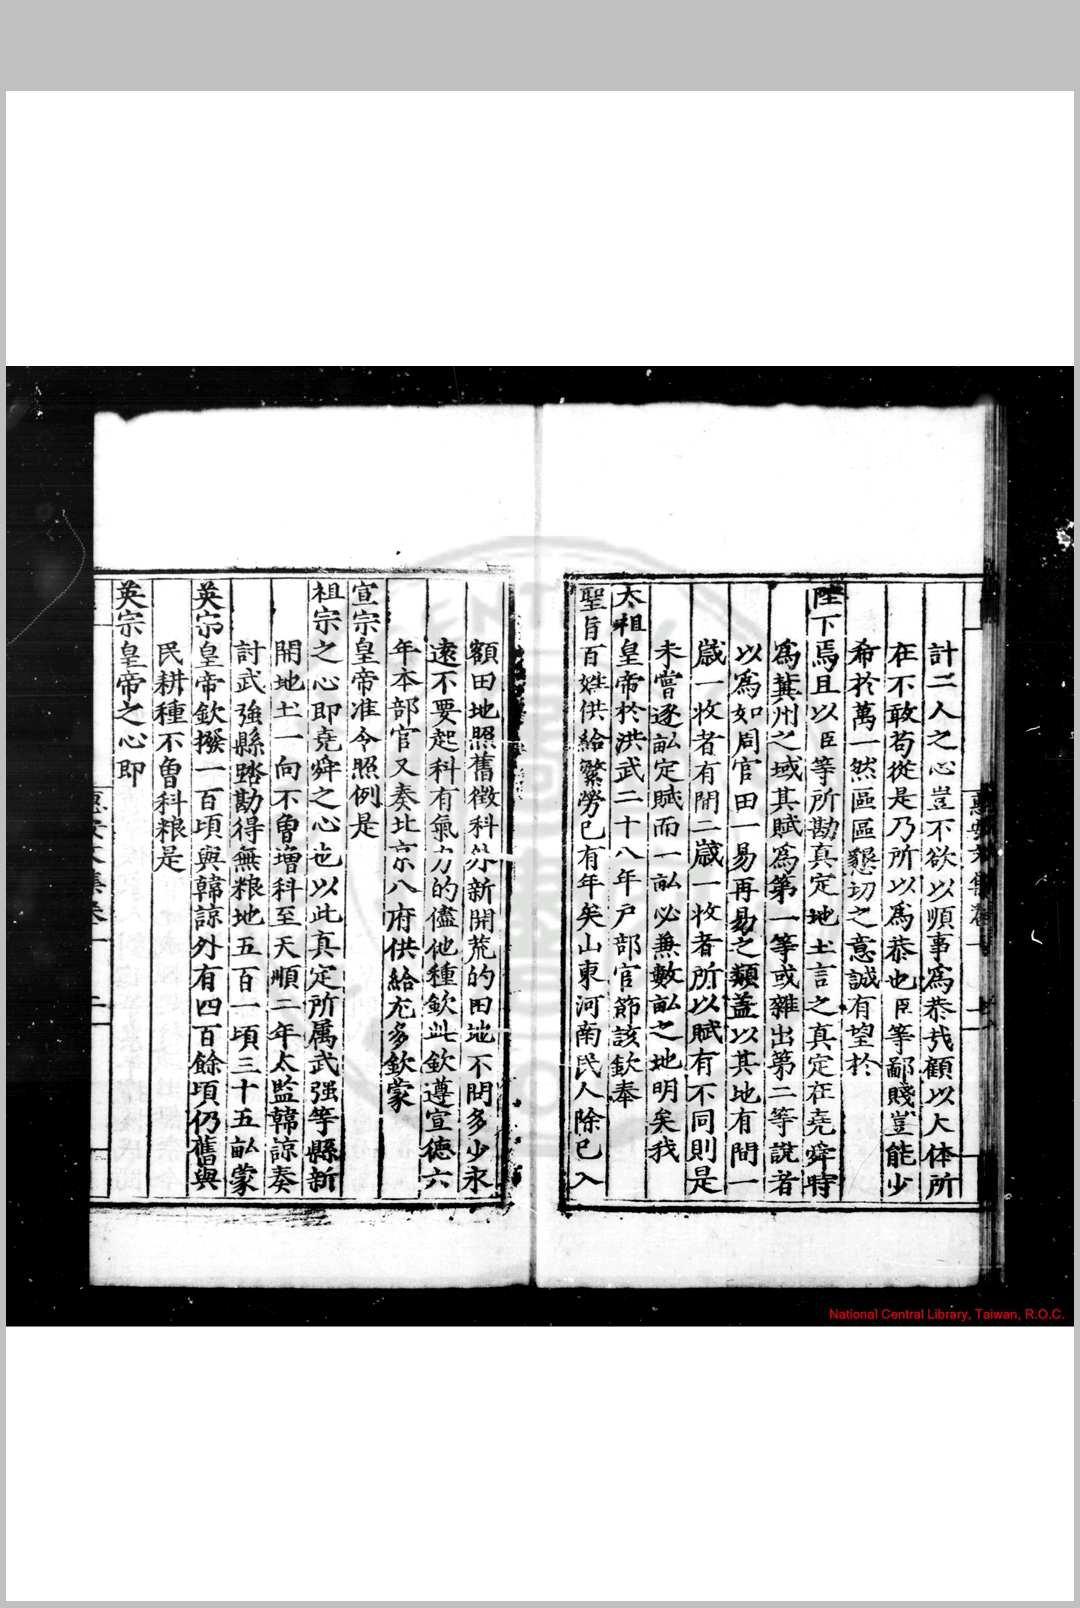 計二人之心豈不欲以順事爲恭㢤顧以大体所
在不敢苟從是乃所以爲恭也臣等鄙賤豈能少
希於萬一然區區懇切之意誠有望於
陛下焉且以臣等所勘真定地土言之真定在尭舜時
爲冀州之域其賦爲第一等或雜出第二等說者
以爲如周官田一易再易之類盖以其地有間一
歲一收者有間二歲一收者所以賦有不同則是
未嘗逐畝定賦而一畝必兼數畝之地明矣我
太祖皇帝於洪武二十八年戶部官節該欽奉
聖旨百姓供給繁勞已有年矣山東河南民人除已入
額田地照舊徵科外新開荒的田地不問多少永
遠不要起科有氣力的儘他種欽此欽遵宣德六
年本部官又奏北京八府供給尤多欽蒙
宣宗皇帝准令照例是
祖宗之心即尭舜之心也以此真定所属武强等縣新
開地土一向不曽増科至天順二年太監韓諒奏
討武強縣踏勘得無粮地五百一頃三十五畝蒙
英宗皇帝欽撥一百頃與韓諒外有四百餘頃仍舊與
民耕種不曽科粮是
英宗皇帝之心即
National Central Library, Taiwan, R.O.C.